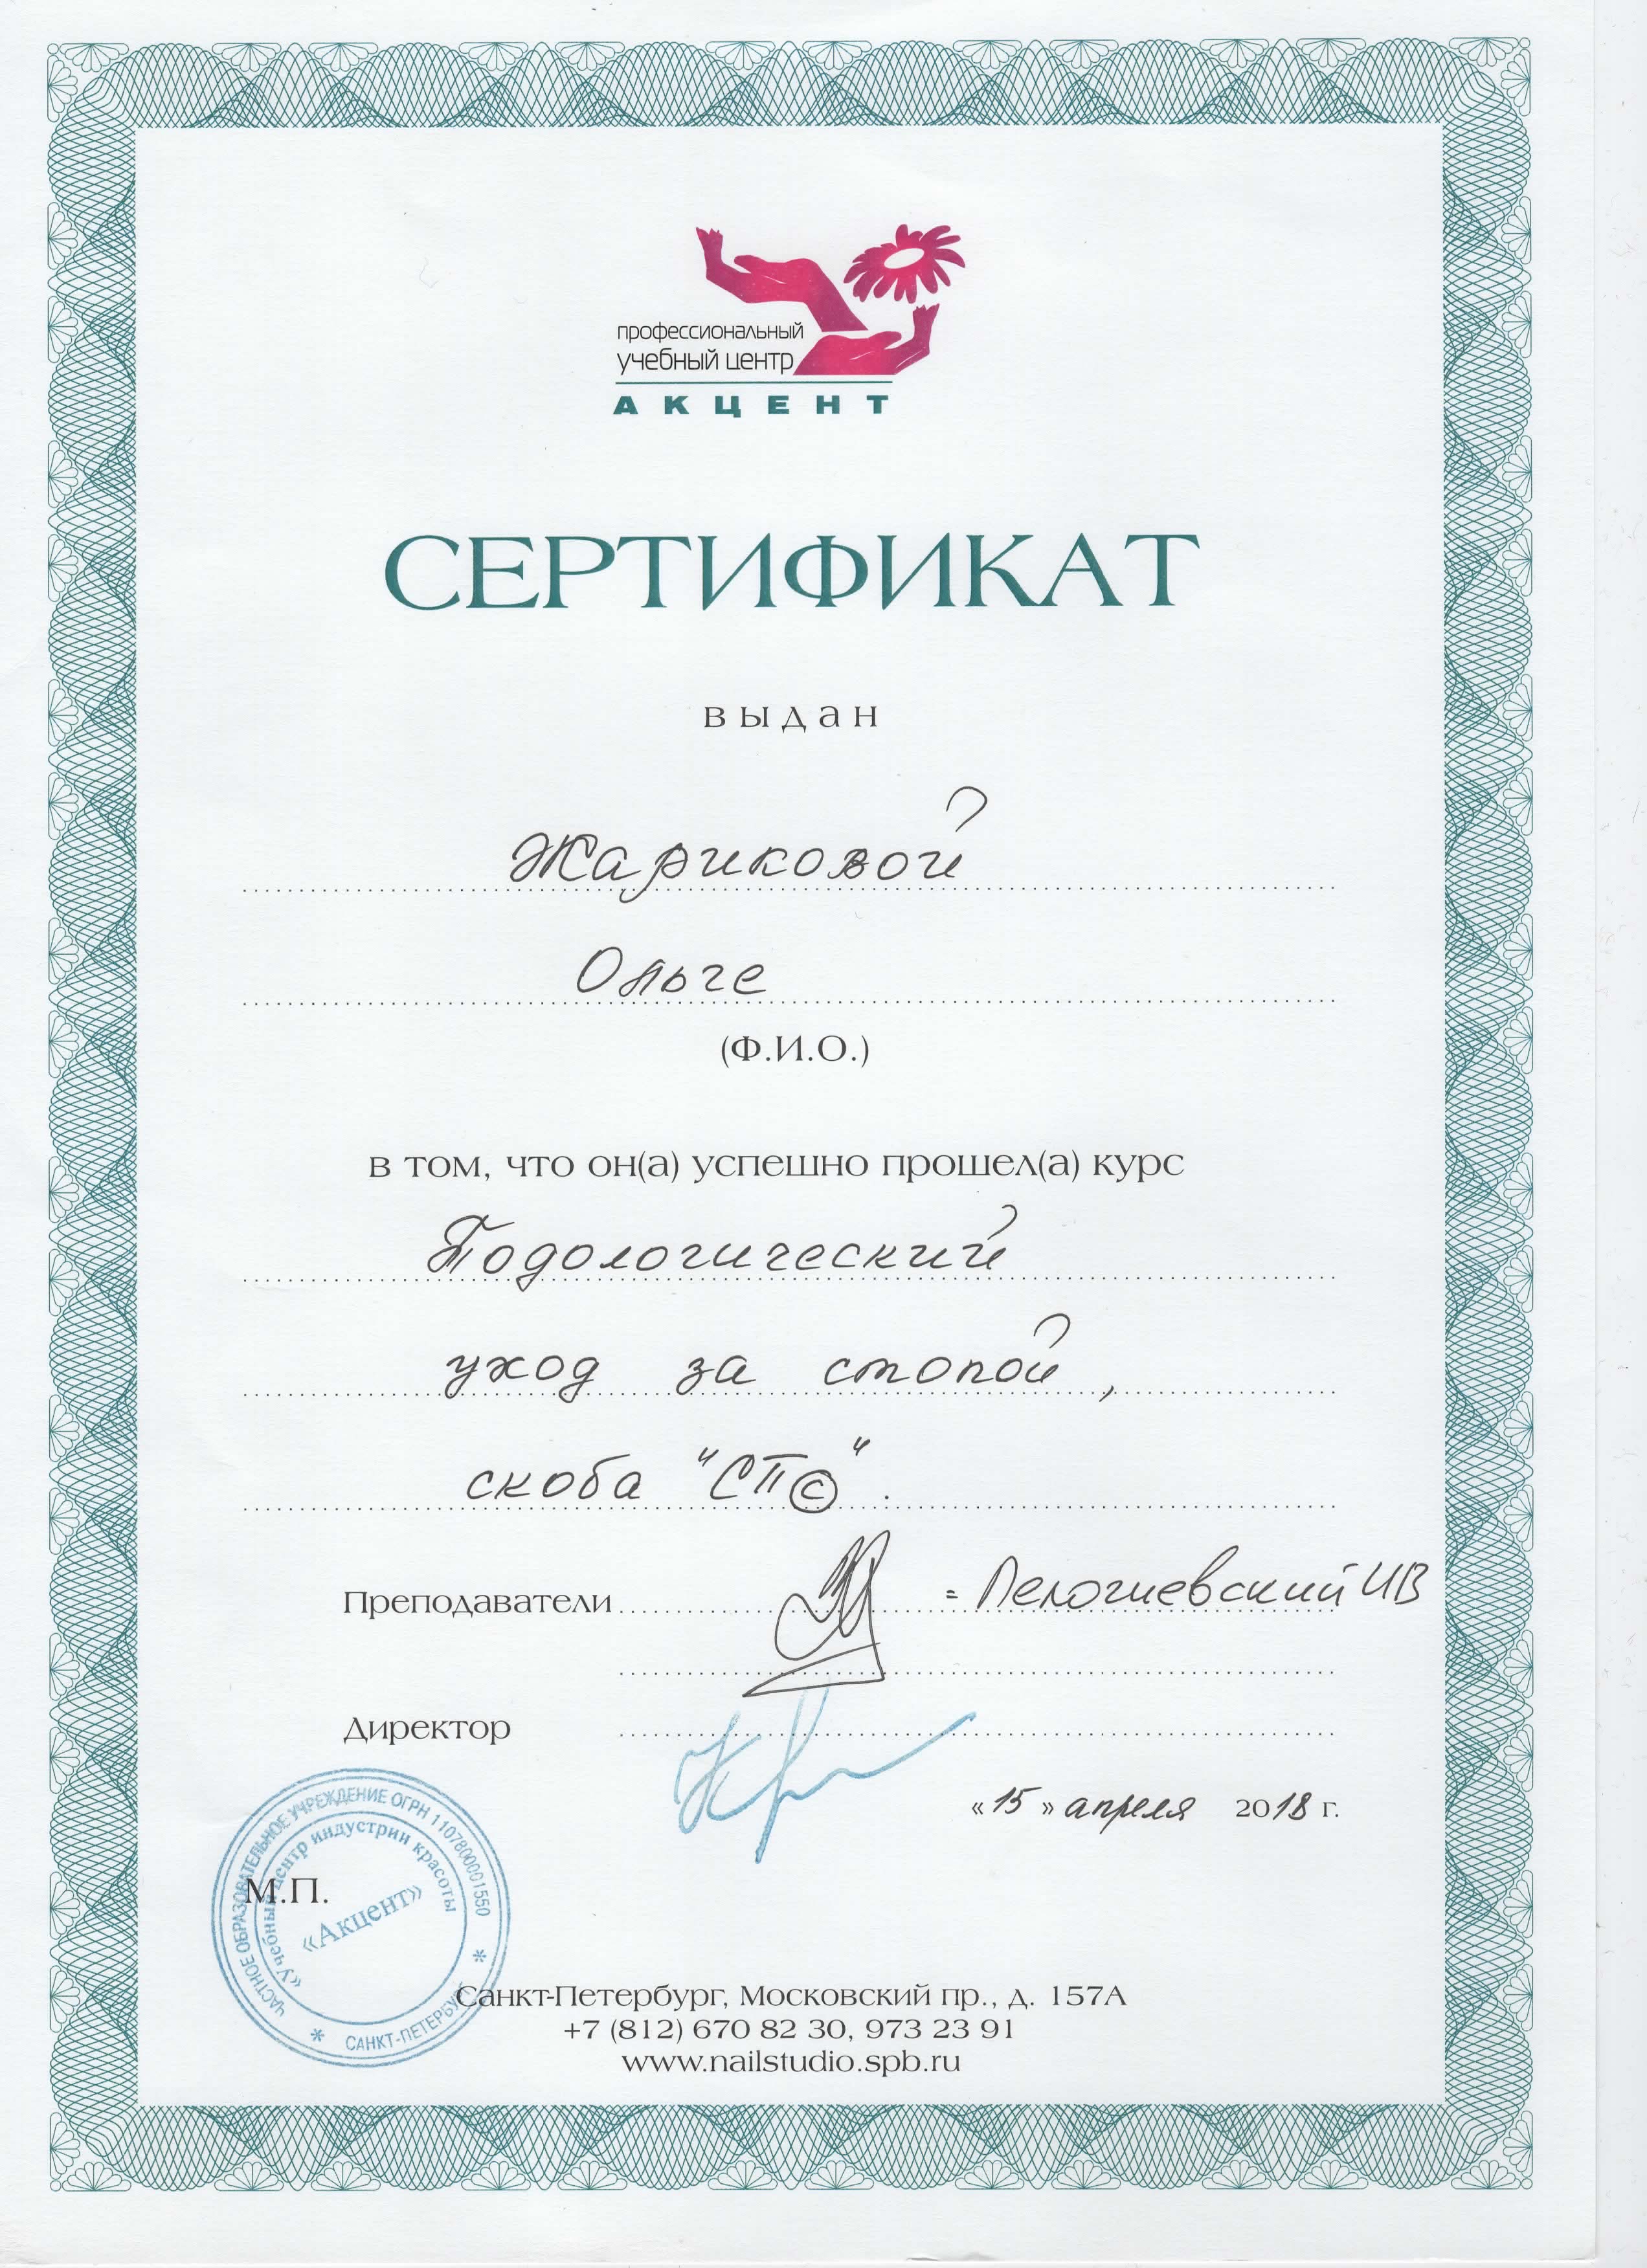 профессиональный
учебный центр
АКЦЕНТ
СЕРТИФИКАТ
выдан
Жариковой
Ольге
(Ф.И.О.)
в том, что он(а) успешно прошел(а) курс
Подологический
уход за стопой,
скоба "СП©".
Преподаватели = Пелогиевский ИВ
Директор
«15» апреля 2018 г.
ЧАСТНОЕ ОБРАЗОВАТЕЛЬНОЕ УЧРЕЖДЕНИЕ ОГРН 1107800001550
«Учебный центр индустрии красоты
«Акцент»
САНКТ-ПЕТЕРБУРГ
М.П.
Санкт-Петербург, Московский пр., д. 157А
+7 (812) 670 82 30, 973 23 91
www.nailstudio.spb.ru